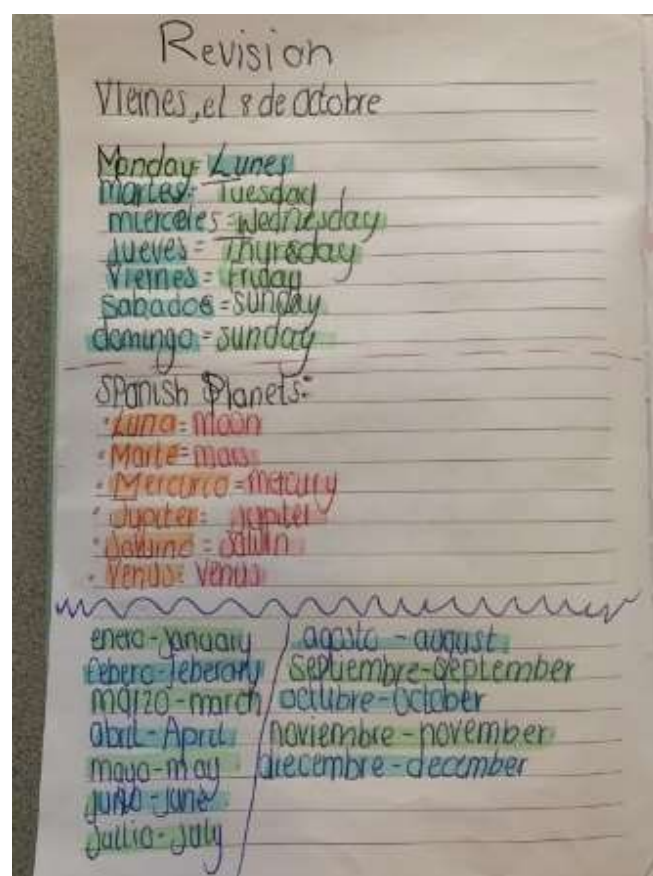 Revision
Viernes, el 8 de octobre
Monday = Lunes
martes = Tuesday
mierceles = Wednesday
Jueves = Thursday
Viernes = Friday
Sabados = sunday
domingo = sunday
Spanish Planets:
· Luna = Moon
· Marte = mars
· Mercurco = mercury
· Jupiter = jupiter
· = saturn
· Venus = Venus
enero - january
febero - feberary
marzo - march
abril - April
mayo - may
- june
- July
agosto - august
Septiembre - September
octubre - October
noviembre - november
diecembre - december